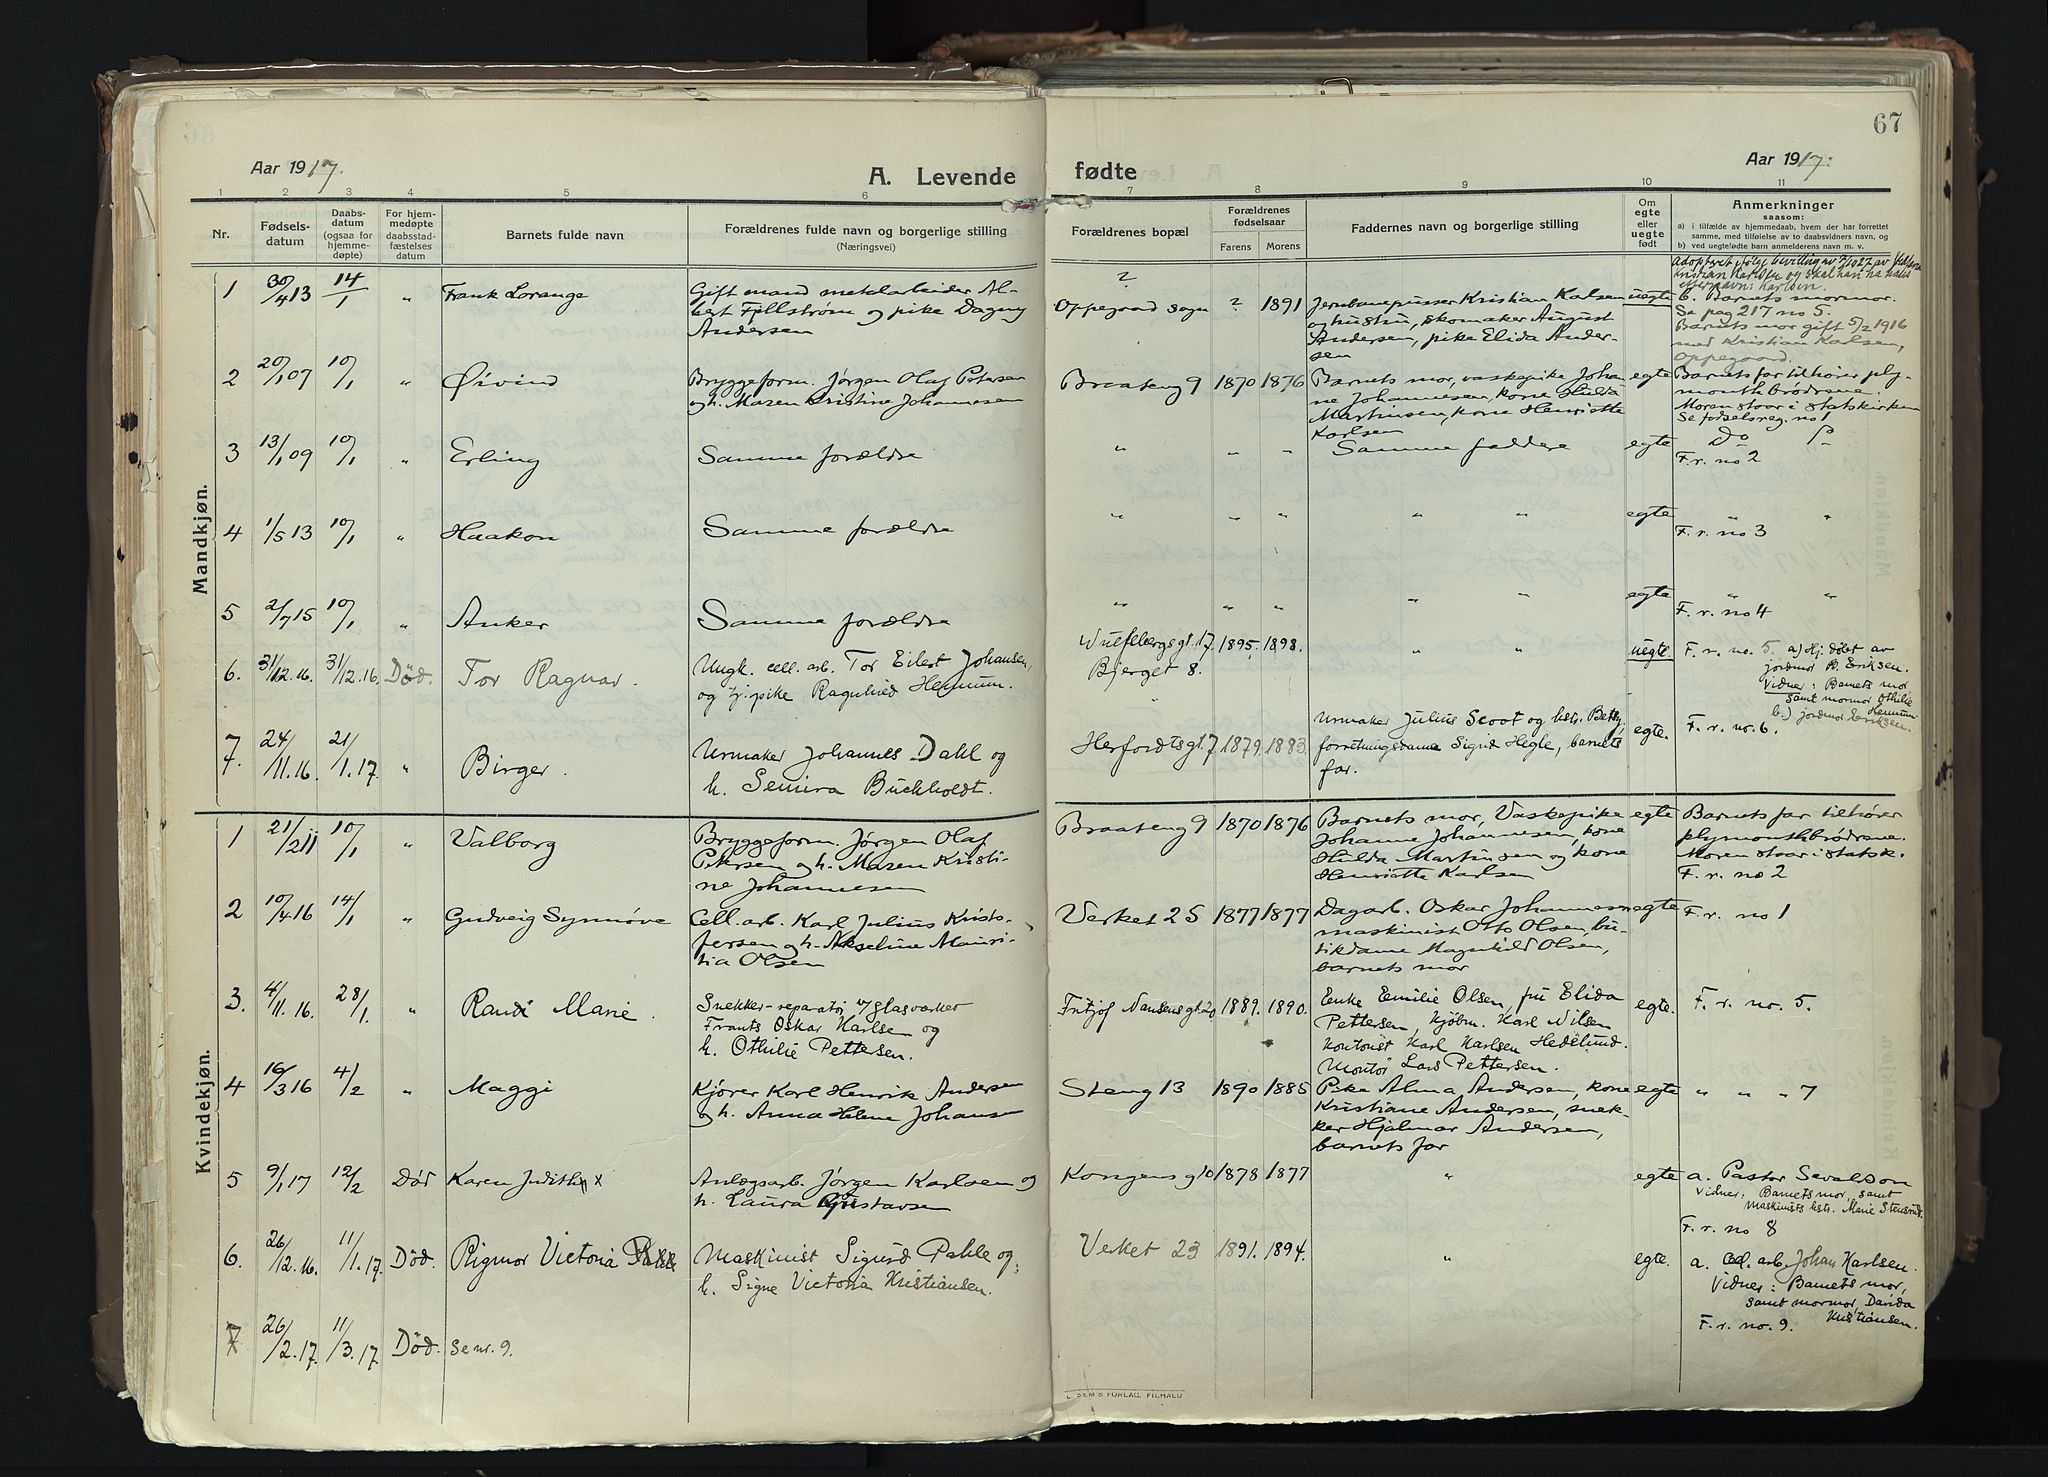 67
Aar 1917.
A. Levende
fødte
Aar 1917.
1 2 3 4 5 6 7 8 9 10 11
Nr.
Fødsels-
datum
Daabs-
datum
(ogsaa for
hjemme-
døpte)
For hjem-
medøpte
daabsstad-
fæstelses
datum
Barnets fulde navn
Forældrenes fulde navn og borgerlige stilling
(Næringsvei)
Forældrenes bopæl
Forældrenes
fødselsaar
Farens Morens
Faddernes navn og borgerlige stilling
Om
egte
eller
uegte
født
Anmerkninger
saasom:
a) i tilfælde av hjemmedaab, hvem der har forrettet
samme, med tilføielse av to daabsvidners navn, og
b) ved uegtefødte barn anmelderens navn m. v.
Mandkjøn.
1 30/4 13 14/1 „ Frank Lorange
Gift mand metalarbeider Al-
bert Fjellstrøm og pike Dagny
Andersen
?
Oppegaard sogn ? 1891
Jernbanepusser Kristian Kalsen
og hustru, skomaker August
Andersen, pike Elida Ander-
sen
uegte
adoptert ifølge bevilling av
Kristian Karlsen og skal han ha
efternavn: Karlsen.
b. Barnets mormor.
Se pag 217 no 5.
Barnets mor gift 5/2 1916
med Kristian Karlsen,
Oppegaard.
2 20/1 07 10/1 „ Øivind
Bryggeform. Jørgen Olaf Petersen
og h. Maren Kristine Johannesen
Braateng 9 1870 1876
Barnets mor, vaskepike Johan
ne Johannesen, kone Hulda
Martinsen, kone Henriette
Karlsen
egte
Barnets far tilhører ply-
mouthbrødrene.
Moren staar i statskirken
Se fødselsreg. no 1
3 13/1 09 10/1 „ Erling
Samme forældre
„ „ „ Samme faddere egte Do Do
F. r. no 2
4 1/5 13 10/1 „ Haakon
Samme forældre
„ „ „ „ „ egte „ „
F. r. no 3
5 2/7 15 10/1 „ Anker
Samme forældre
„ „ „ „ „ egte „ „
F. r. no 4
6. 31/12.16. 31/12.16 Død. Tor Ragnar.
Ungk. cell. arb. Tor Eilert Johansen,
og tj. pike Ragnhild Hennum.
Wulfsbergsgt. 17. 1895. 1898.
Bjerget 8.
„ „ uegte.
F. r. no. 5. a) Hj. døbt av
jordmor B. Eriksen.
Vidner: Barnets mor
samt mormor Othilie
Hennum
b.) jordmor Eriksen.
7. 24/11.16. 21/1.17. „ Birger.
Urmaker Johannes Dahl og
h. Semira Buchholdt.
Herfordtsgt. 7 1879. 1883.
Urmaker Julius Scoot og hstr. Betsy,
forretningsdame Sigrid Hegle, barnets
far.
egte.
F. r. no. 6.
Kvindekjøn.
1 21/2 11 10/1 „ Valborg
Bryggeform. Jørgen Olaf
Petersen og h. Maren Kristi-
ne Johannesen
Braateng 9 1870 1876
Barnets mor, Vaskepike
Johanne Johannesen, kone
Hulda Martinsen og kone
Henriette Karlsen
egte
Barnets far tilhører
plymouthbrødrene.
Moren staar i statsk.
F. r. no 2
2 10/4 16 14/1 „ Gudveig Synnøve
Cell. arb. Karl Julius Kristo-
fersen og h. Akseline Mauri-
tia Olsen
Verket 25 1877 1877
Dagarb. Oskar Johannesen
maskinist Otto Olsen, bu-
tikdame Magnhild Olsen,
barnets mor
egte F. r. no 1
3. 4/11.16. 28/1. „ Randi Marie.
Snekker-reparatør v/ glasværket
Frants Oskar Karlsen og
h. Othilie Pettersen.
Fritjof Nansensgt. 20 1889. 1890.
Enke Emilie Olsen, fru Elida
Pettersen, kjøbm. Karl Nilsen
kontorist Karl Karlsen Hedelund.
Montør Lars Pettersen.
egte. F. r. no. 5.
4 16/3 16 4/2 „ Maggi
Kjører Karl Henrik Andersen
og h. Anna Helene Johansen
Steng 13 1890 1885
Pike Alma Andersen, kone
Kristiane Andersen, snek-
ker Hjalmar Andersen,
barnets far
egte „ „ „ 7
5 9/1 17 12/2 Død Karen Judith x
Anlægsarb. Jørgen Karlsen og
h. Laura Gustavsen
Kongensg 10 1878 1877 „ egte
a. Pastor Sevaldson
Vidner: Barnets mor, samt
maskinists hstr. Marie Stensrud.
F. r. no 8
6. 26/12.16. 11/1.17. Død. Rigmor Victoria
Maskinist Sigurd Pahle og
h. Signe Victoria Kristiansen.
Verket 23 1891. 1894. „ egte.
a. Cel. arb. Johan Karlsen.
Vidner: Barnets mor,
samt mormor, Davida
Kristiansen.
F. r. no. 9.
7 26/2.17. 11/3.17 Død. Se nr. 9.
SEM'S FORLAG, FR.HALD